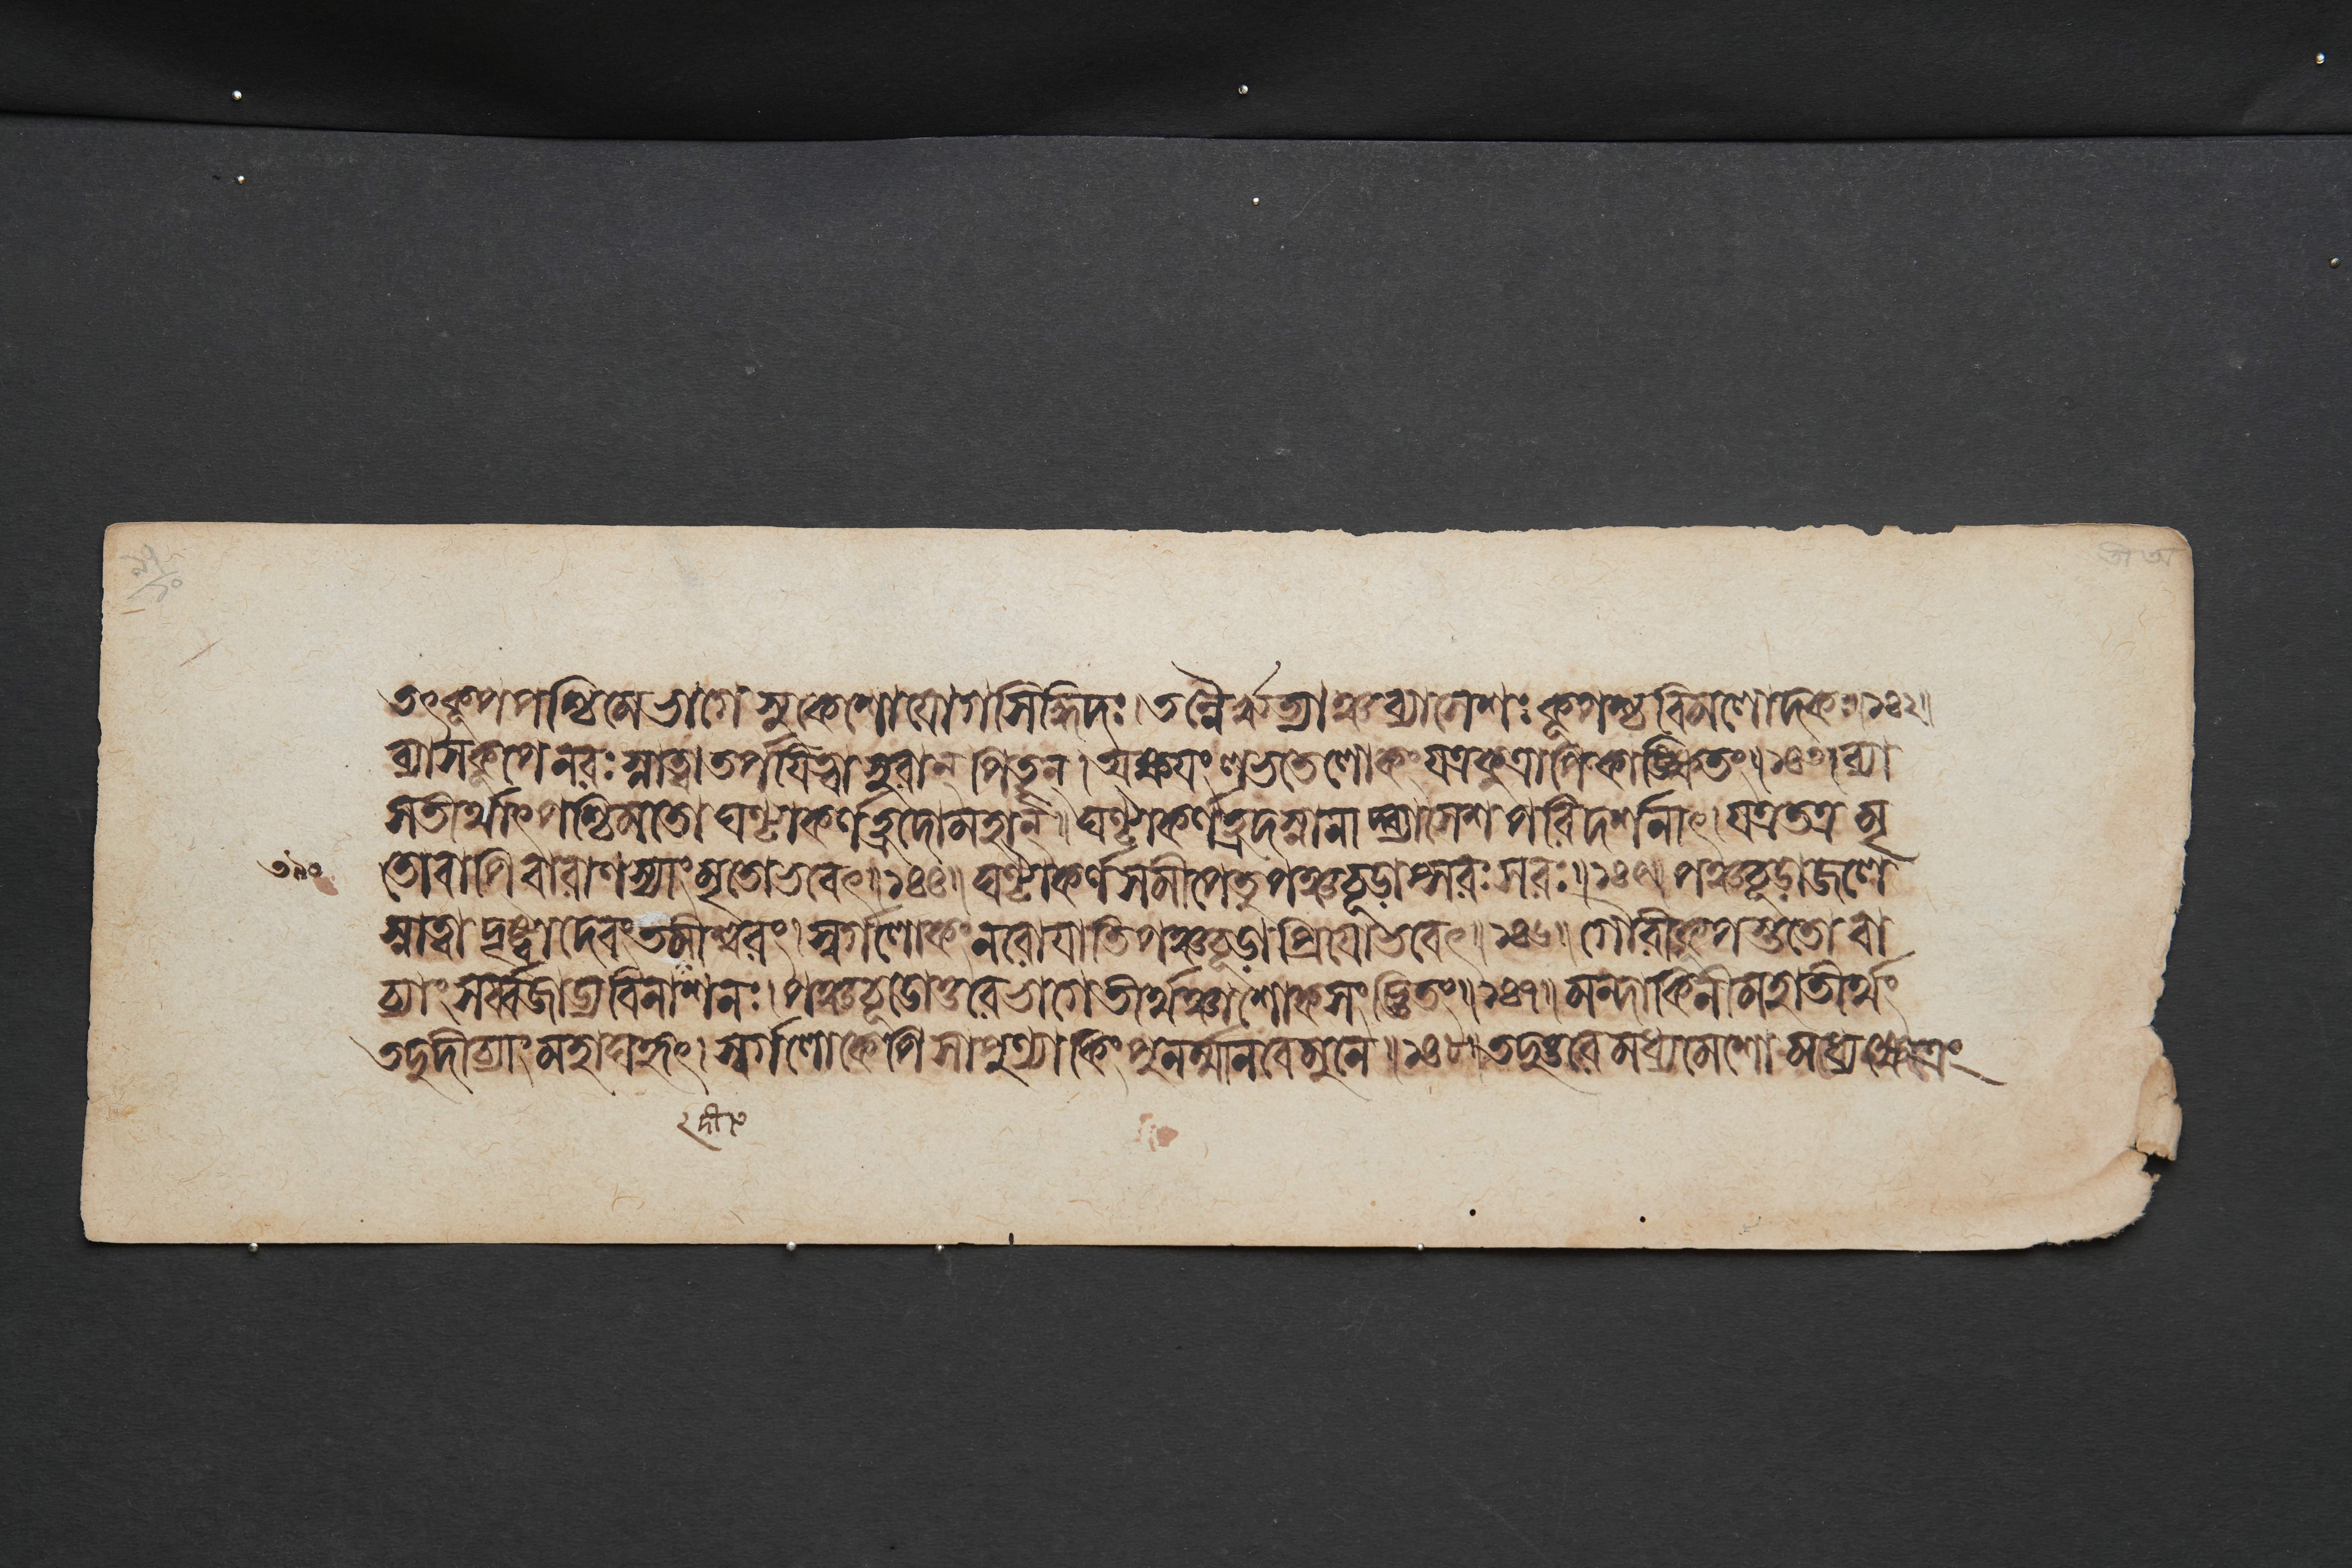 তৎকূপপশ্চিমে ভাগে শুকেশো যোগসিদ্ধিদঃ। তন্নৈরৃত্যাঞ্চ ব্যাসেশঃ কূপশ্চ বিমলোদকঃ॥১৪২॥
ব্যাসকূপে নরঃ স্নাত্বা তর্পযিত্বা সুরান্ পিতৄন্। অক্ষযং লভতে লোকং যত্রকুত্রাপি কাঙ্ক্ষিতং॥১৪৩॥ ব্যা
সতীর্থাৎ পশ্চিমতো ঘণ্টাকর্ণহ্রদো মহান্॥ ঘণ্টাকর্ণহ্রদ স্নানাদ্ব্যাসেশ পরিদর্শনাৎ। যত্রতত্র মৃ
তোবাপি বারাণস্যাং মৃতো ভবেৎ॥১৪৪॥ ঘণ্টাকর্ণসমীপে তু পঞ্চচূড়াপ্সরঃসরঃ॥১৪৫॥ পঞ্চচূড়াজলে
স্নাত্বা দৃষ্ট্বা দেবং তমীশ্বরং। স্বর্গলোকং নরো যাতি পঞ্চচূড়াপ্রিযো ভবেৎ॥১৪৬॥ গৌরীকূপস্ততো বা
চ্যাং সর্ব্বজাড্যবিনাশনঃ। পঞ্চচূড়োত্তরে ভাগে তীর্থঞ্চাশোকসংজ্ঞিতং॥১৪৭॥ মন্দাকিনীমহাতীর্থং
তদুদীচ্যাং মহাঘহৃৎ। স্বর্গলোকেপি সা পুণ্যা কিং পুনর্ম্মানবে মুনে॥১৪৮॥ তদুত্তরে মধ্যমেশো মধ্যেক্ষেত্রং